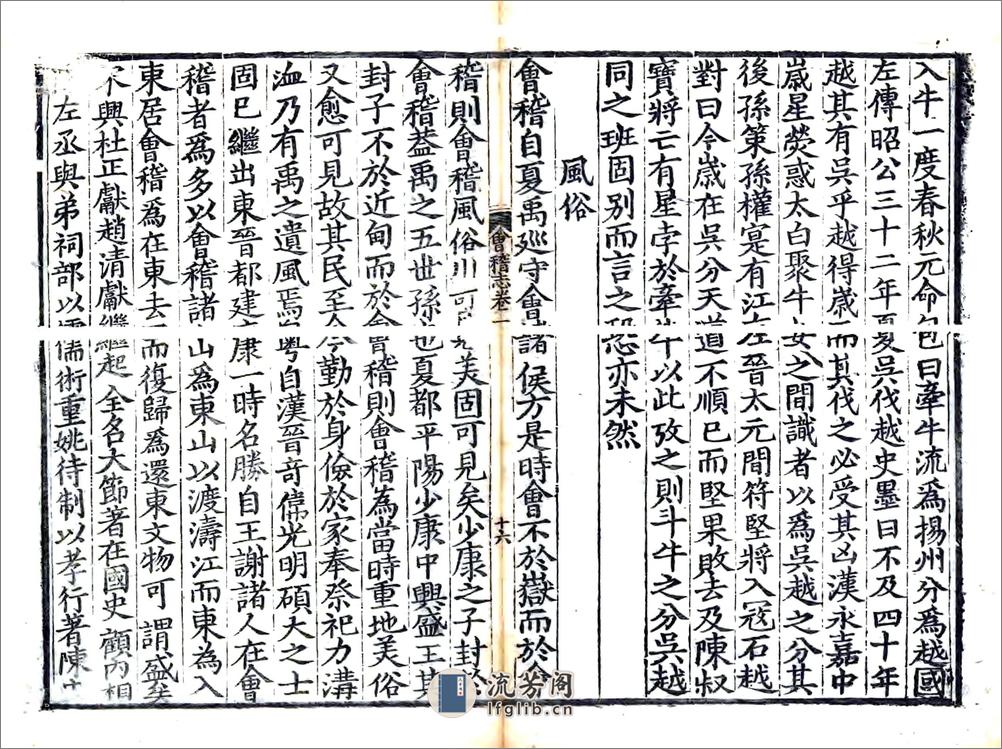 入牛一度春秋元命包曰牽牛流爲揚州分爲越國
左傳昭公三十二年夏吳伐越史墨曰不及四十年
越其有吳乎越得歲而其伐之必受其凶漢永嘉中
歲星熒惑太白聚牛女之間識者以爲吳越之分其
後孫策孫權寔有江左晉太元間符堅將入寇石越
對曰今歲在吳分天道不順已而堅果敗去及陳叔
寶將亡有星孛於牽牛以此攷之則斗牛之分吳越
同之班固別而言之恐亦未然
風俗
會稽自夏禹廵守會諸侯方是時會不於嶽而於會
稽則會稽風俗美固可見矣少康之子封於
會稽葢禹之五世孫也夏都平陽少康中興盛王其
封子不於近甸而於會稽則會稽為當時重地美俗
又愈可見故其民至今勤於身儉於家奉祭祀力溝
洫乃有禹之遺風焉粤自漢晉竒偉光明碩大之士
固已繼出東晉都建康一時名勝自王謝諸人在會
稽者為多以會稽諸山為東山以渡濤江而東為入
東居會稽爲在東去而復歸爲還東文物可謂盛矣
宋興杜正獻趙清獻繼起全名大節著在國史顧內相
左丞與弟祠部以儒術重姚待制以孝行著陳
會稽志卷一
十六
流芳阁
lfglib.cn